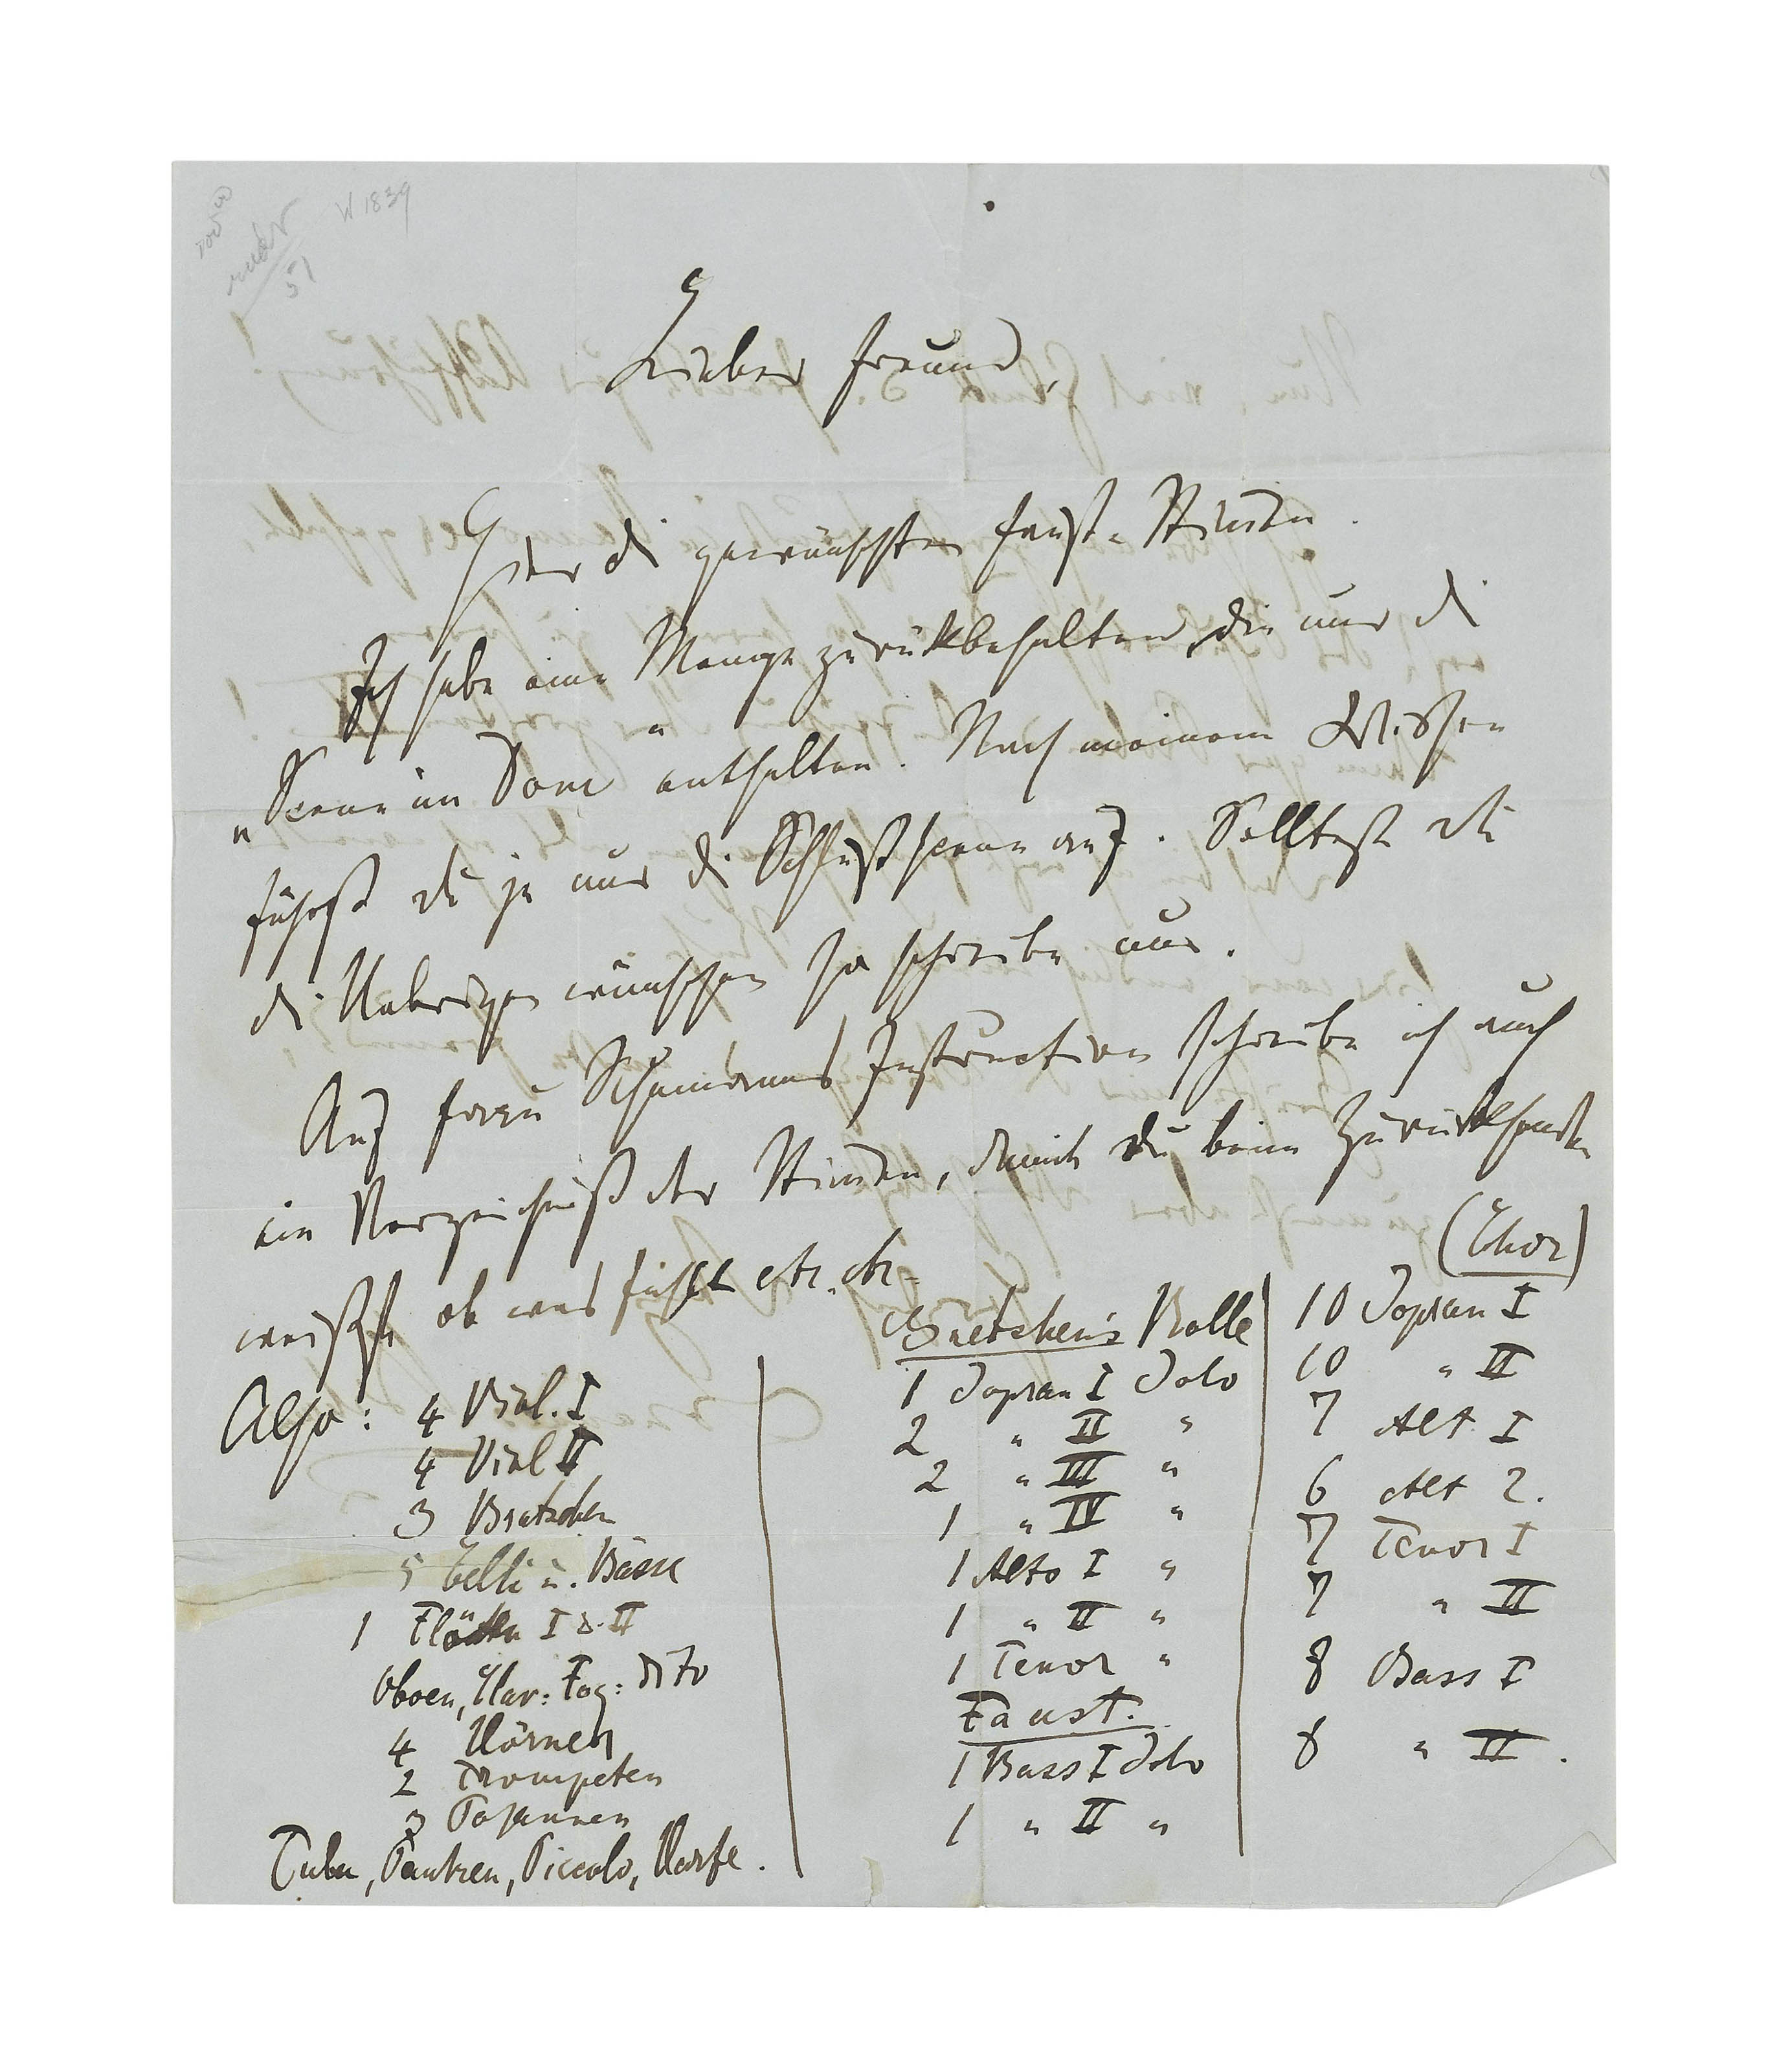 W 1839
51
Lieber Freund,
Hier die gewünschten Faust-Stimmen.
Ich habe eine Menge zurückbehalten, die nur die
„Scene im Dom“ enthalten. Nach meinem Wissen
führst du ja nur die Schlußscene auf. Solltest du
die Uebrigen wünschen so schreibe nur.
Auf Frau Schumanns Instruction schreibe ich auch
ein Verzeichniß der Stimmen, damit du beim Zurücksenden
weißt ob was fehlt etc. etc.
Also: 4 Viol. I
4 Viol II
3 Bratschen
5 Celli u. Bässe
1 Flöten I & II
Oboen, Clar: Fag: dito
4 Hörner
2 Trompeten
3 Posaunen
Tuba, Pauken, Piccolo, Harfe.
Gretchen's Rolle
1 Sopran I Solo
2 " II "
2 " III "
1 " IV "
1 Alto I "
1 " II "
1 Tenor "
Faust.
1 Bass I Solo
1 " II "
(Chor)
10 Sopran I
10 " II
7 Alt I
6 Alt 2.
7 Tenor I
7 " II
8 Bass I
8 " II.